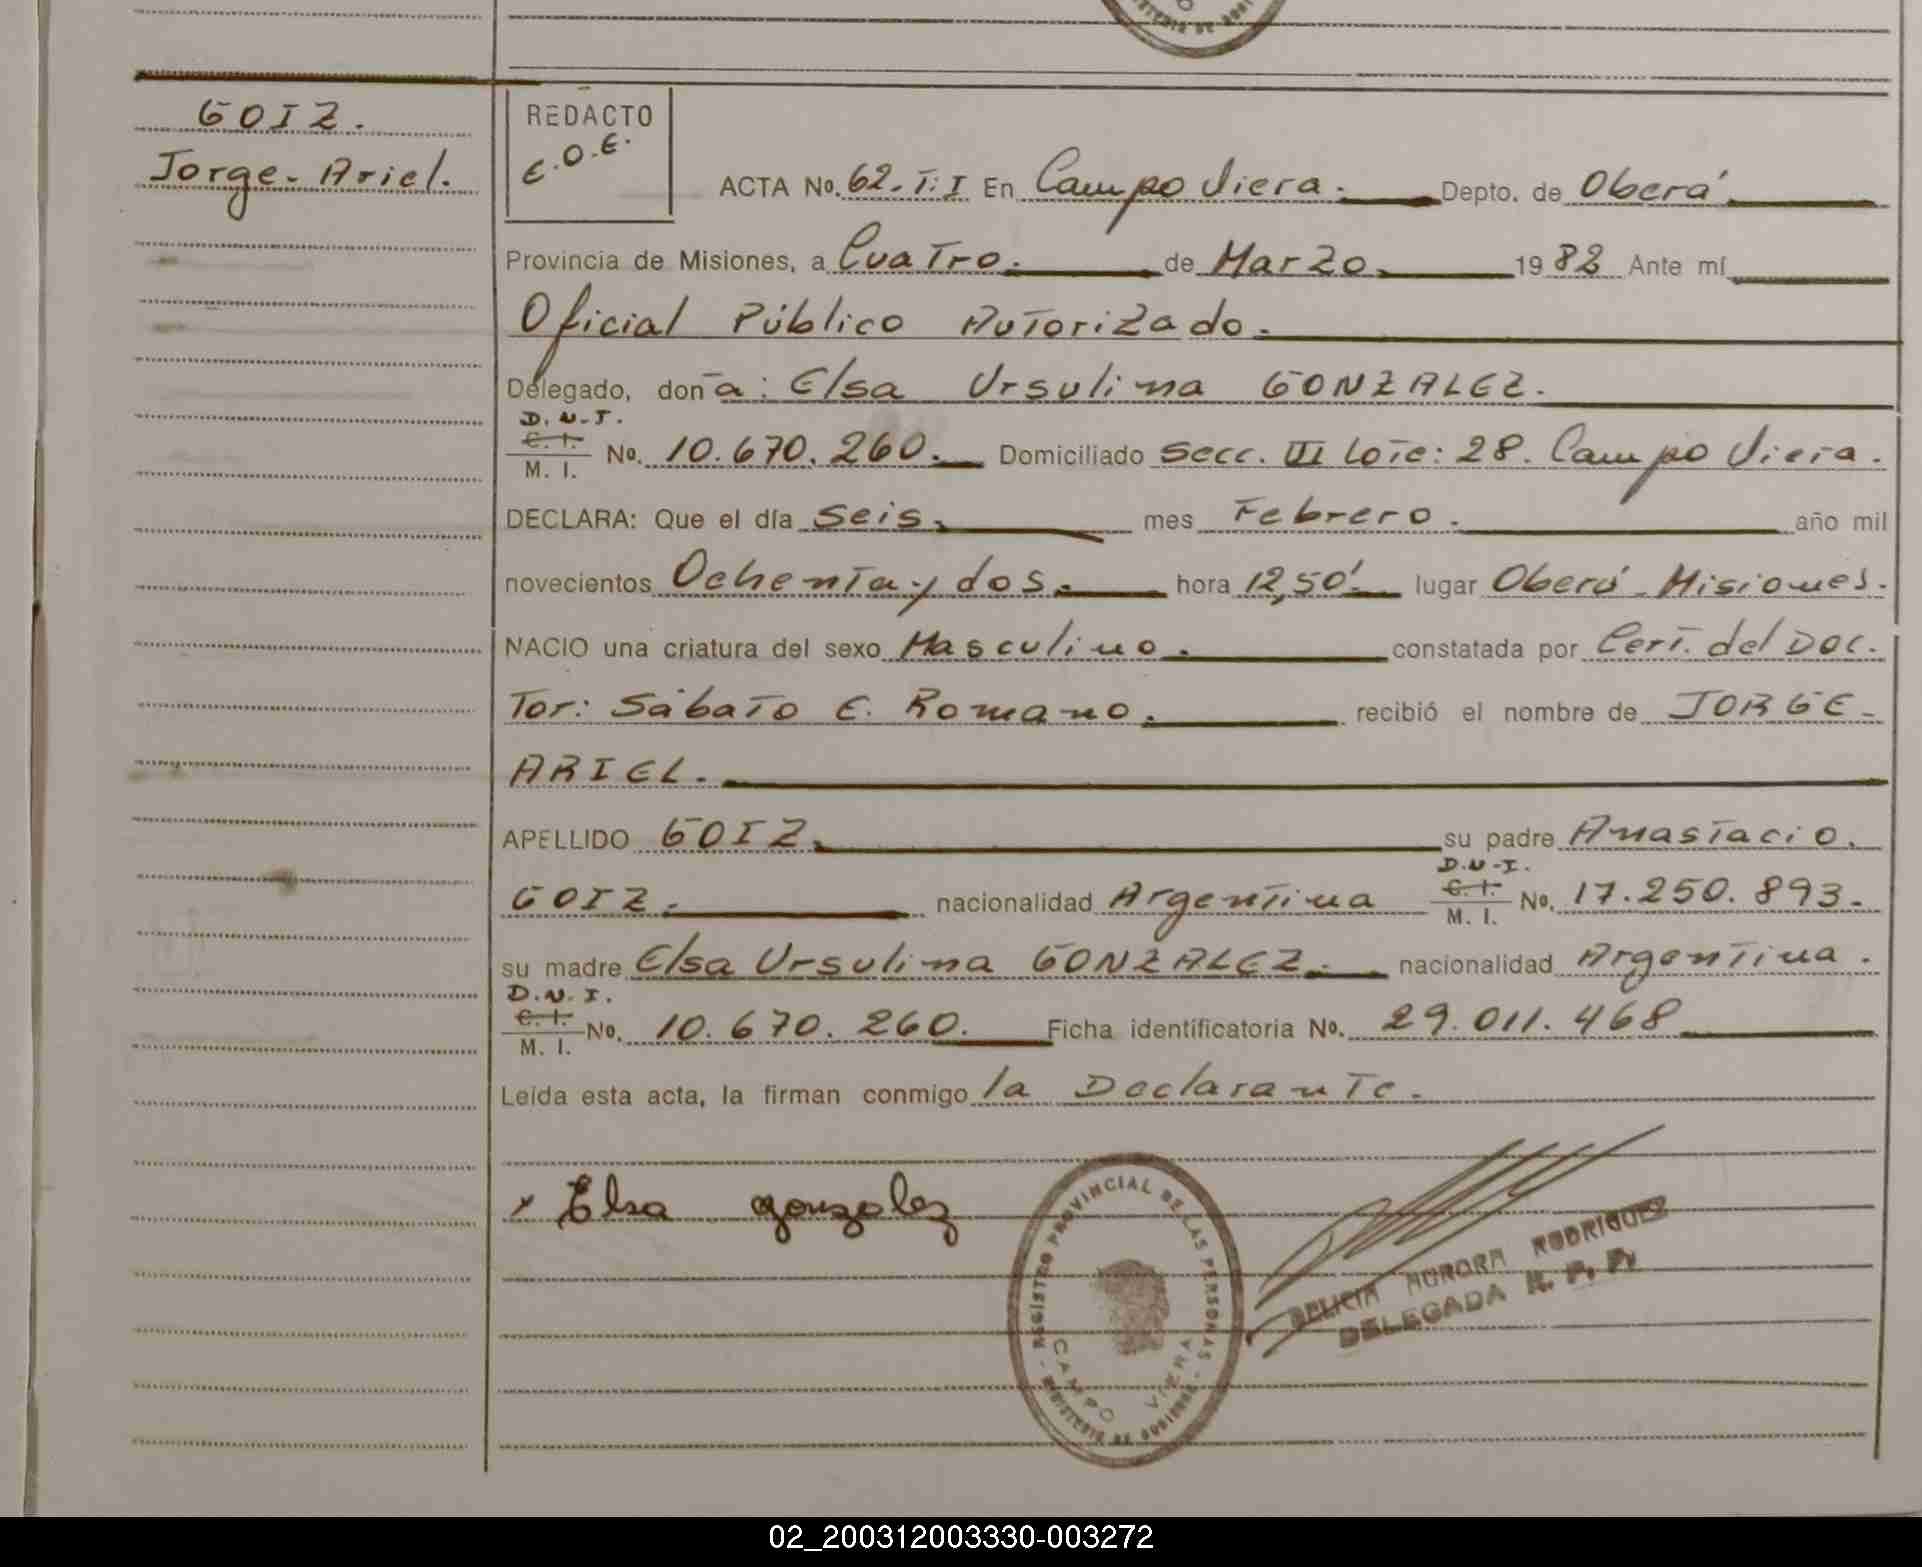 GOIZ.
Jorge- Ariel.
REDACTO
E.O.E.
ACTA No. 62. T: I En Campo Viera. Depto. de Oberá
Provincia de Misiones, a Cuatro. de Marzo. 1982 Ante mí
Oficial Público Autorizado.
Delegado, doña: Elsa Ursulina GONZALEZ.
D.N.I.
C. I.
M. I.
No. 10.670.260. Domiciliado Secc. III Lote: 28. Campo Viera.
DECLARA: Que el día Seis. mes Febrero. año mil
novecientos Ochenta y dos. hora 12,50'. lugar Oberá - Misiones.
NACIO una criatura del sexo Masculino. constatada por Cert. del Doc.
Tor: Sábato E. Romano. recibió el nombre de JORGE-
ARIEL.
APELLIDO GOIZ. su padre Anastacio.
D.N.I.
GOIZ. nacionalidad Argentina C. I. No. 17.250.893.
M. I.
su madre Elsa Ursulina GONZALEZ. nacionalidad Argentina.
D.N.I.
C. I. No. 10.670.260. Ficha identificatoria No. 29.011.468
M. I.
Leída esta acta, la firman conmigo la Declarante.
x Elsa gonzalez
REGISTRO PROVINCIAL DE LAS PERSONAS
CAMPO VIERA
MINISTERIO DE GOBIERNO
DELICIA AURORA RODRIGUEZ
DELEGADA R. P. P.
02_200312003330-003272